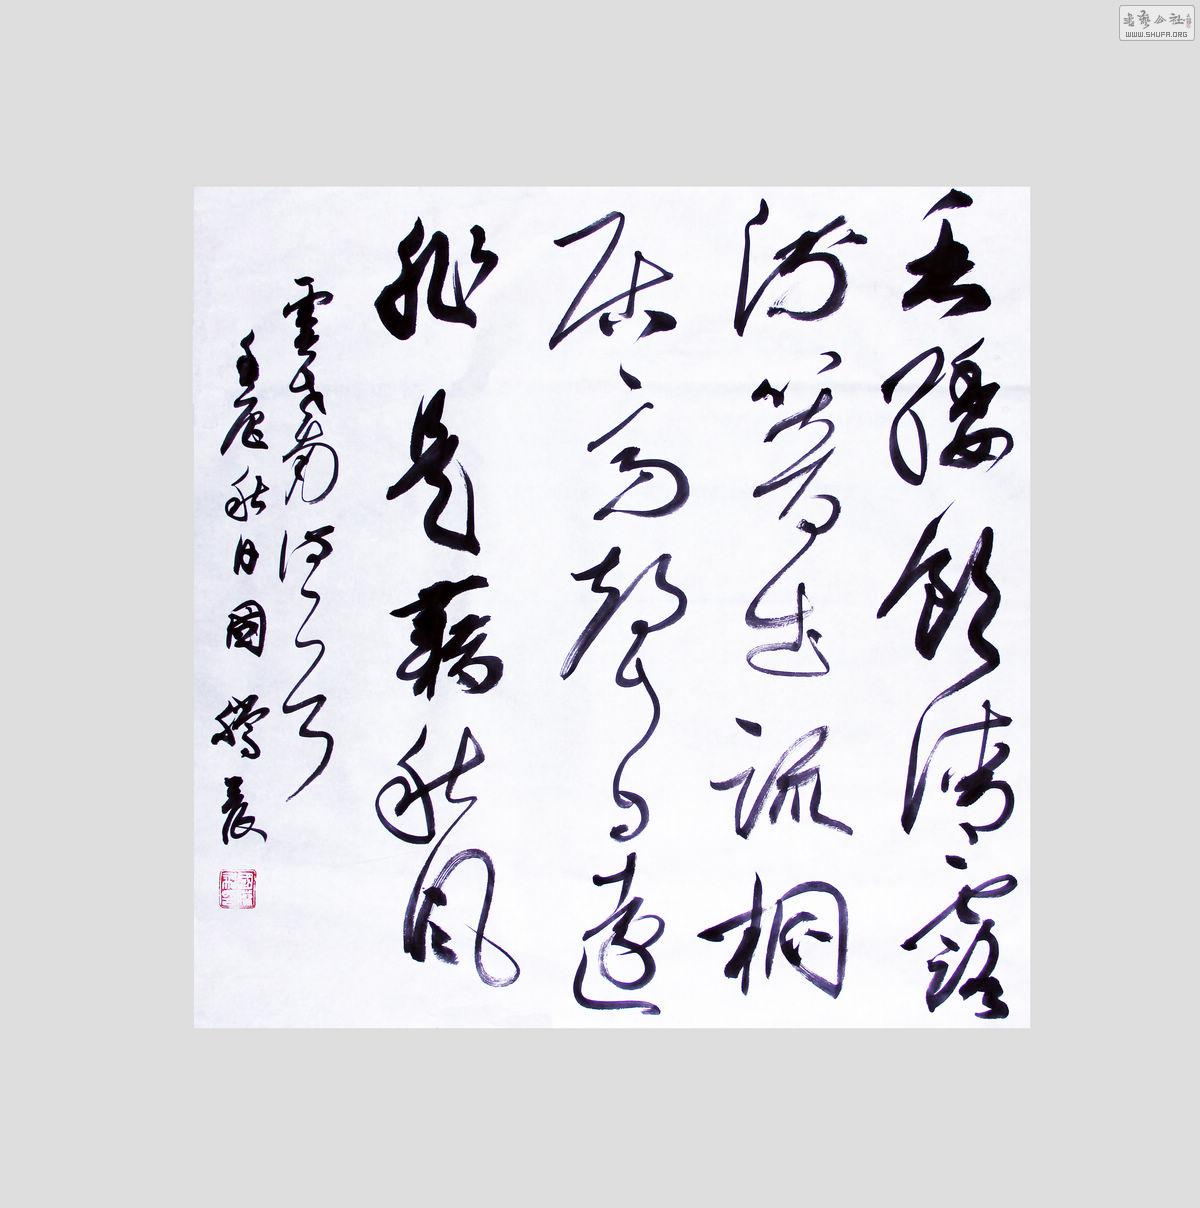 垂緌飲清露
流響出疏桐
居高聲自遠
非是藉秋風
虞世南詩一首
壬辰秋日國
書藝公社
WWW.SHUFA.ORG